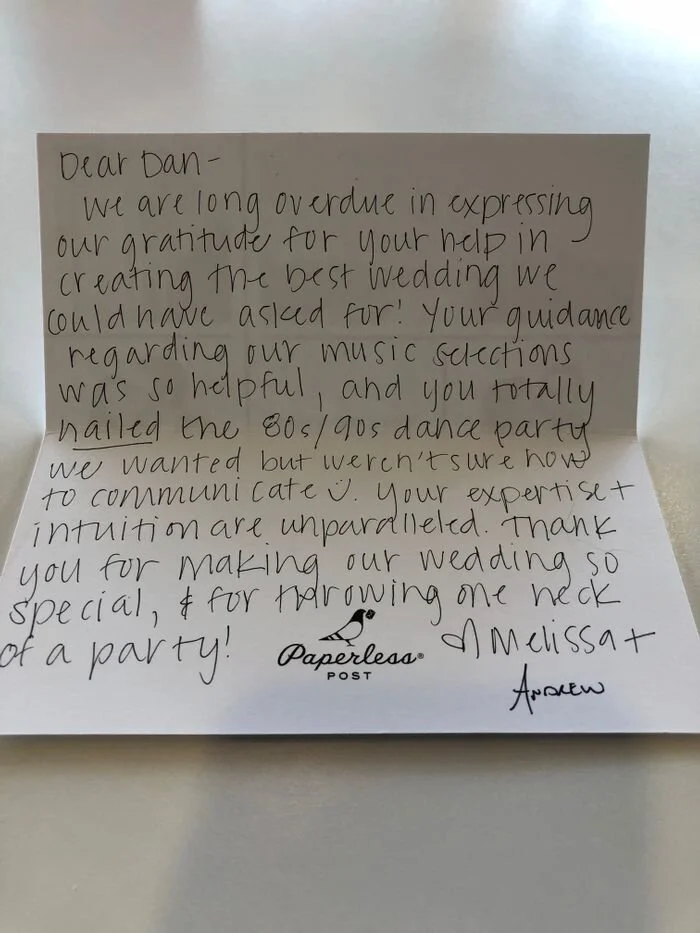 Dear Dan-
We are long overdue in expressing
our gratitude for your help in
creating the best wedding we
could have asked for! Your guidance
regarding our music selections
was so helpful, and you totally
nailed the 80s/90s dance party
we wanted but weren't sure how
to communicate ☺. Your expertise +
intuition are unparalleled. Thank
you for making our wedding so
special, & for throwing one heck
of a party!
♡ Melissa +
Andrew
Paperless®
POST